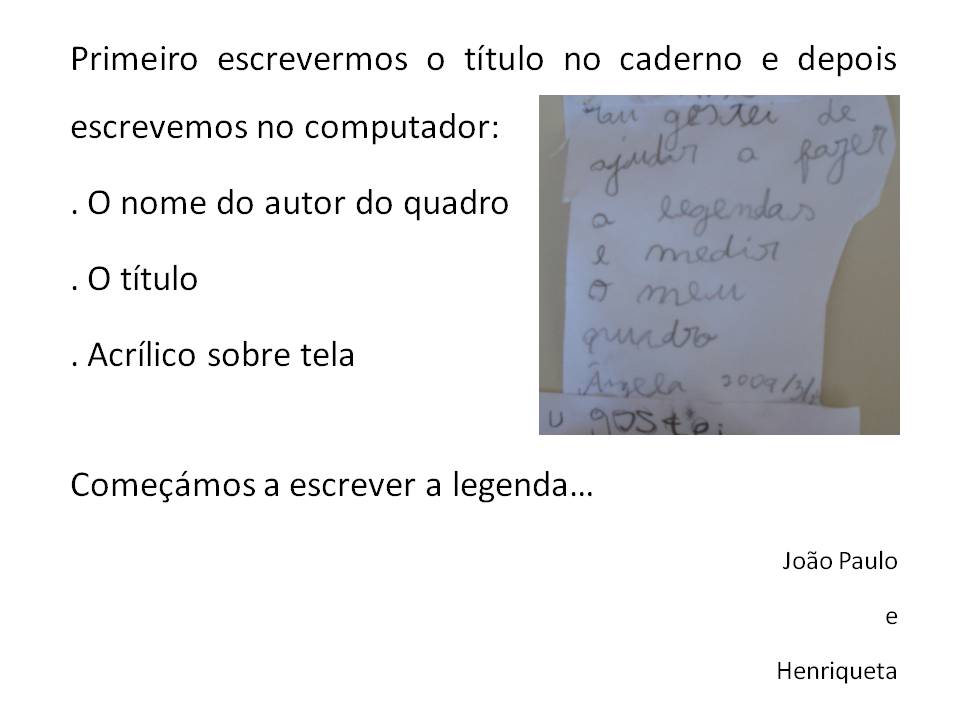 Primeiro escrevermos o título no caderno e depois
escrevemos no computador:
. O nome do autor do quadro
. O título
. Acrílico sobre tela
gostei de
ajudar a fazer
a legendas
e medir
o meu
quadro
Ângela 2009/3/
U gostei
Começámos a escrever a legenda...
João Paulo
e
Henriqueta